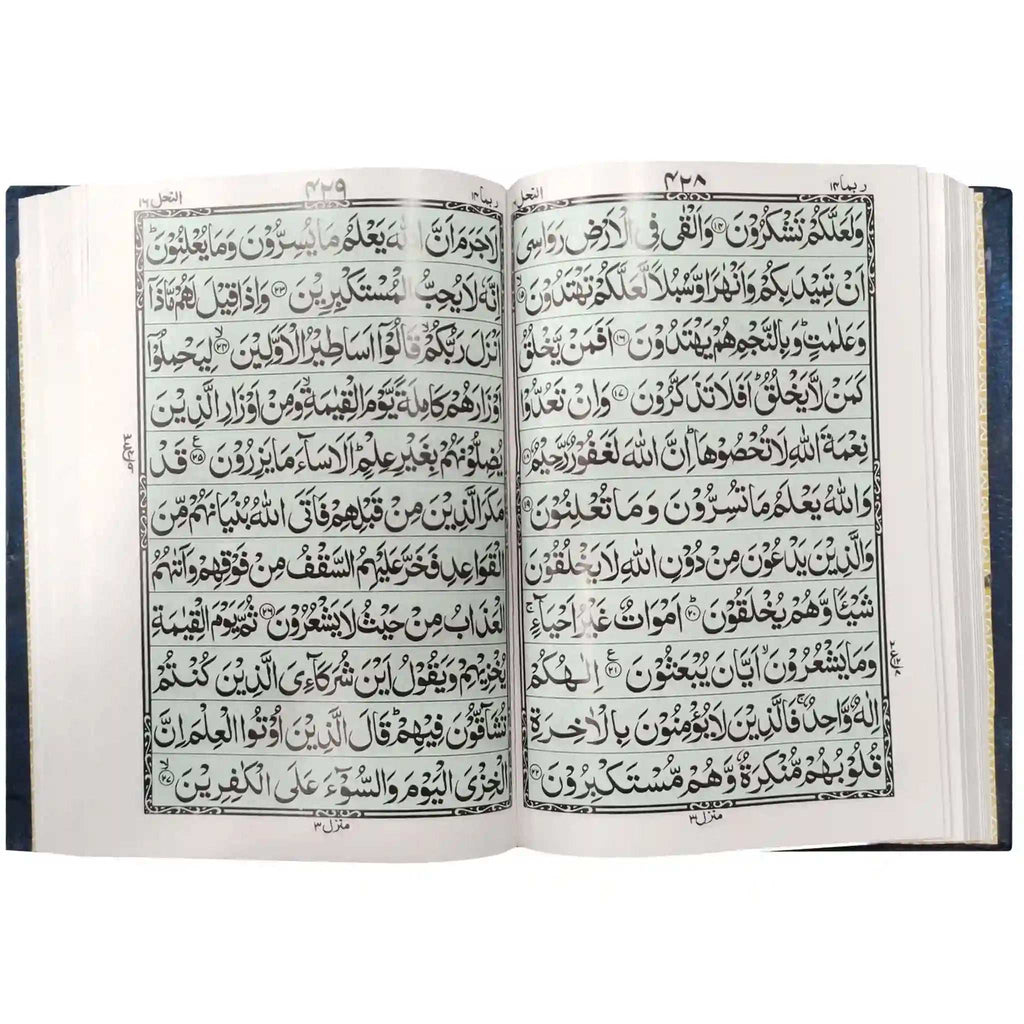 ربما ۱۴
۴۲۸
النحل
وَلَعَلَّكُمْ تَشْكُرُوْنَ ﴿۱۴﴾ وَاَلْقٰى فِى الْاَرْضِ رَوَاسِىَ
اَنْ تَمِيْدَ بِكُمْ وَاَنْهٰرًا وَّسُبُلًا لَّعَلَّكُمْ تَهْتَدُوْنَ ﴿۱۵﴾
وَعَلٰمٰتٍ ؕ وَبِالنَّجْمِ هُمْ يَهْتَدُوْنَ ﴿۱۶﴾ اَفَمَنْ يَّخْلُقُ
كَمَنْ لَّا يَخْلُقُ ؕ اَفَلَا تَذَكَّرُوْنَ ﴿۱۷﴾ وَاِنْ تَعُدُّوْا
نِعْمَةَ اللّٰهِ لَا تُحْصُوْهَا ؕ اِنَّ اللّٰهَ لَغَفُوْرٌ رَّحِيْمٌ ﴿۱۸﴾
وَاللّٰهُ يَعْلَمُ مَا تُسِرُّوْنَ وَمَا تُعْلِنُوْنَ ﴿۱۹﴾
وَالَّذِيْنَ يَدْعُوْنَ مِنْ دُوْنِ اللّٰهِ لَا يَخْلُقُوْنَ
شَيْـًٔا وَّهُمْ يُخْلَقُوْنَ ؕ ﴿۲۰﴾ اَمْوَاتٌ غَيْرُ اَحْيَآءٍ ۚ
وَمَا يَشْعُرُوْنَ ۙ اَيَّانَ يُبْعَثُوْنَ ﴿۲۱﴾ ع اِلٰهُكُمْ
اِلٰهٌ وَّاحِدٌ ۚ فَالَّذِيْنَ لَا يُؤْمِنُوْنَ بِالْاٰخِرَةِ
قُلُوْبُهُمْ مُّنْكِرَةٌ وَّهُمْ مُّسْتَكْبِرُوْنَ ﴿۲۲﴾
منزل ۳
ربما ۱۴
۴۲۹
النحل ۱۶
لَاجَرَمَ اَنَّ اللّٰهَ يَعْلَمُ مَا يُسِرُّوْنَ وَمَا يُعْلِنُوْنَ ؕ
اِنَّهٗ لَا يُحِبُّ الْمُسْتَكْبِرِيْنَ ﴿۲۳﴾ وَاِذَا قِيْلَ لَهُمْ مَّاذَآ
اَنْزَلَ رَبُّكُمْ ۙ قَالُوْٓا اَسَاطِيْرُ الْاَوَّلِيْنَ ۙ ﴿۲۴﴾ لِيَحْمِلُوْٓا
اَوْزَارَهُمْ كَامِلَةً يَّوْمَ الْقِيٰمَةِ ۙ وَمِنْ اَوْزَارِ الَّذِيْنَ
يُضِلُّوْنَهُمْ بِغَيْرِ عِلْمٍ ؕ اَلَا سَآءَ مَا يَزِرُوْنَ ﴿۲۵﴾ ع قَدْ
مَكَرَ الَّذِيْنَ مِنْ قَبْلِهِمْ فَاَتَى اللّٰهُ بُنْيَانَهُمْ مِّنَ
الْقَوَاعِدِ فَخَرَّ عَلَيْهِمُ السَّقْفُ مِنْ فَوْقِهِمْ وَاَتٰىهُمُ
الْعَذَابُ مِنْ حَيْثُ لَا يَشْعُرُوْنَ ﴿۲۶﴾ ثُمَّ يَوْمَ الْقِيٰمَةِ
يُخْزِيْهِمْ وَيَقُوْلُ اَيْنَ شُرَكَآءِىَ الَّذِيْنَ كُنْتُمْ
تُشَآقُّوْنَ فِيْهِمْ ؕ قَالَ الَّذِيْنَ اُوْتُوا الْعِلْمَ اِنَّ
الْخِزْىَ الْيَوْمَ وَالسُّوْٓءَ عَلَى الْكٰفِرِيْنَ ۙ ﴿۲۷﴾
منزل ۳